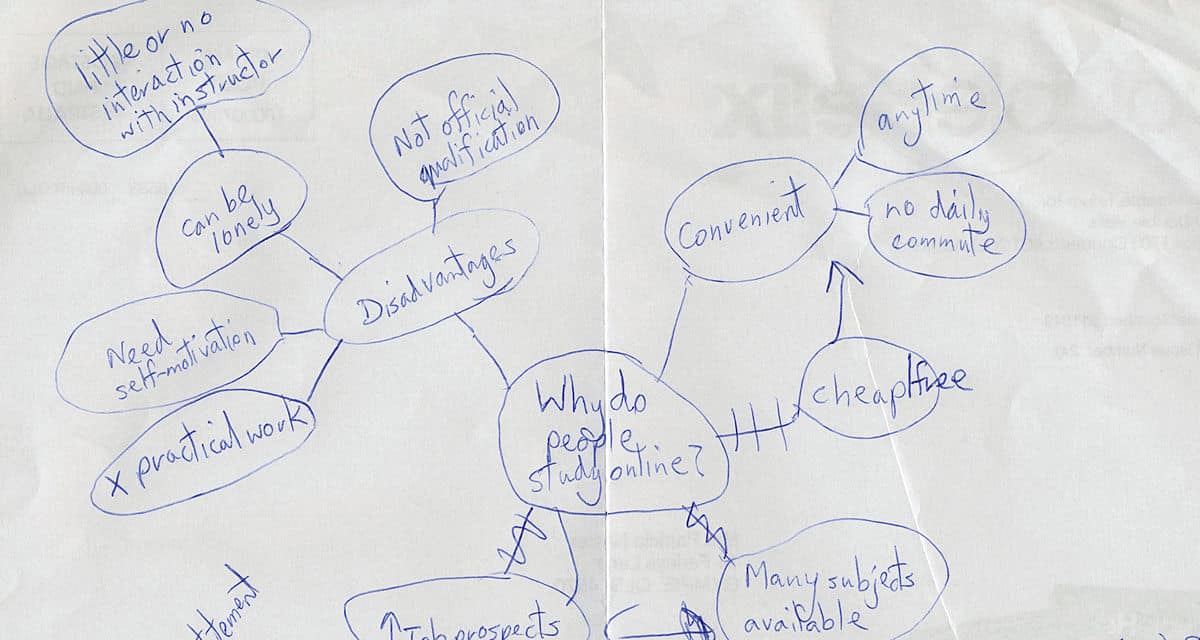 little or no
interaction
with instructor
Not official
qualification
can be
lonely
Disadvantages
Need
self-motivation
X practical work
Why do
people
study online?
Convenient
anytime
no daily
commute
cheap/free
Many subjects
available
↑ Job prospects